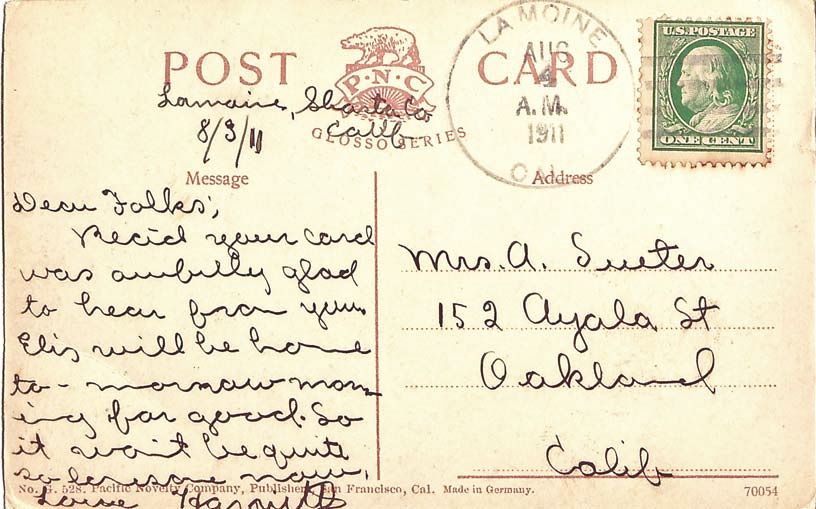 LAMOINE
AUG
4
A.M.
1911
CAL.
U.S. POSTAGE
ONE CENT
POST CARD
P·N·C
GLOSSO SERIES
Lamoine, Shasta Co
Calif
8/3/11
Message
Address
Dear Folks;
Rec'd your card
was awfully glad
to hear from you.
Elis will be home
to-morrow morn-
ing for good. So
it won't be quite
so lonesome now.
Love
Mrs. A. Sueter
152 Ayala St
Oakland
Calif
No. G. 528. Pacific Novelty Company, Publishers, San Francisco, Cal. Made in Germany.
70054